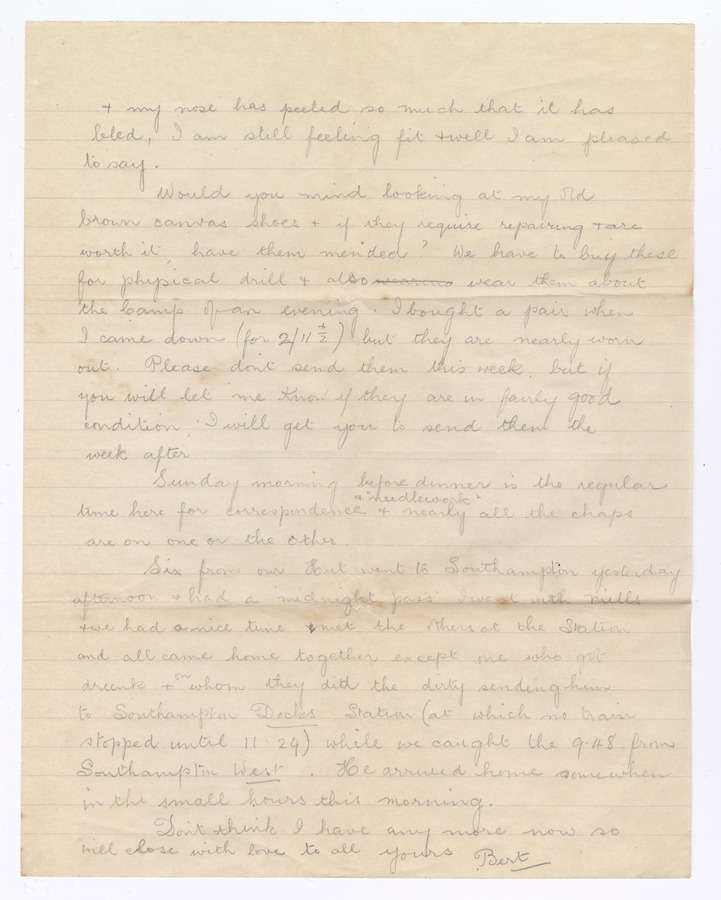 + my nose has peeled so much that it has
bled, I am still feeling fit + well I am pleased
to say.
Would you mind looking at my old
brown canvas shoes + if they require repairing + are
worth it, have them mended? We have to buy these
for physical drill + also wearing wear them about
the Camp of an evening. I bought a pair when
I came down (for 2/11½) but they are nearly worn
out. Please don't send them this week, but if
you will let me know if they are in fairly good
condition, I will get you to send them the
week after
Sunday morning before dinner is the regular
+ "needlework"
time here for correspondence + nearly all the chaps
are on one or the other.
Six from our Hut went to Southampton yesterday
afternoon + had a midnight pass I went with Mills
+ we had a nice time met the others at the Station
and all came home together except one who got
drunk + on whom they did the dirty sending him
to Southampton Docks Station (at which no train
stopped until 11.24) while we caught the 9.48 from
Southampton West. He arrived home somewhen
in the small hours this morning.
Don't think I have any more now so
will close with love to all yours Bert